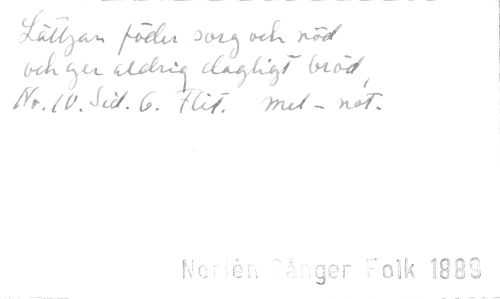 Lättjan föder sorg och nöd
och ger aldrig dagligt bröd,
No. 10. Sid. 6. Flit. mel-not.
Norlén Sånger Folk 1889